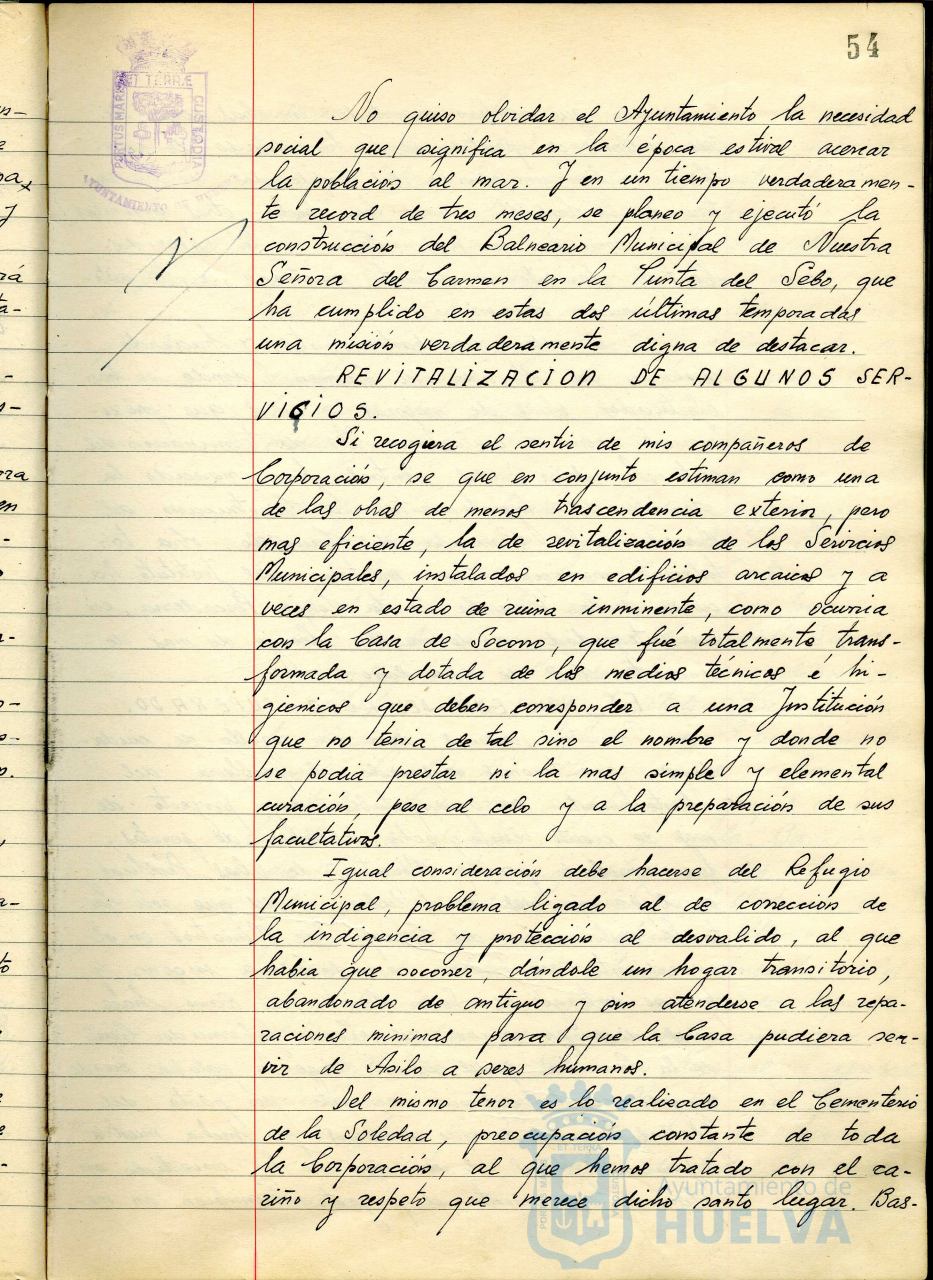 54
No quiso olvidar el Ayuntamiento la necesidad
social que significa en la época estival acercar
la población al mar. Y en un tiempo verdaderamen-
te record de tres meses, se planeo y ejecutó la
construcción del Balneario Municipal de Nuestra
Señora del Carmen en la Punta del Sebo, que
ha cumplido en estas dos últimas temporadas
una misión verdaderamente digna de destacar.
REVITALIZACION DE ALGUNOS SER-
VICIOS.
Si recogiera el sentir de mis compañeros de
Corporación, se que en conjunto estiman como una
de las obras de menos trascendencia exterior, pero
mas eficiente, la de revitalización de los Servicios
Municipales, instalados en edificios arcaicos y a
veces en estado de ruina inminente, como ocurria
con la Casa de Socorro, que fué totalmente trans-
formada y dotada de los medios técnicos é hi-
gienicos que deben corresponder a una Institución
que no tenia de tal sino el nombre y donde no
se podia prestar ni la mas simple y elemental
curación pese al celo y a la preparación de sus
facultativos.
Igual consideración debe hacerse del Refugio
Municipal, problema ligado al de corrección de
la indigencia y protección al desvalido, al que
habia que socorrer, dándole un hogar transitorio,
abandonado de antiguo y sin atenderse a las repa-
raciones minimas para que la Casa pudiera ser-
vir de Asilo a seres humanos.
Del mismo tenor es lo realizado en el Cementerio
de la Soledad, preocupación constante de toda
la Corporación, al que hemos tratado con el ca-
riño y respeto que merece dicho santo lugar. Bas-
Ayuntamiento de
HUELVA